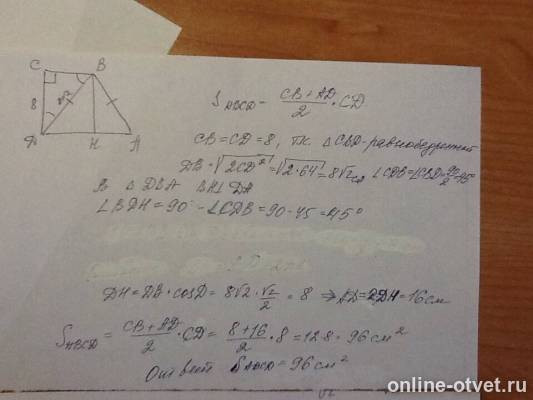 C B
8
D H A
S ABCD = CB + AD / 2 · CD
CB = CD = 8, т.к. △CBD - равнобедренный
DB = √2CD² = √2·64 = 8√2 см ∠CDB = ∠CBD = 90/2 = 45°
В △DBA BH⊥DA
∠BDH = 90° - ∠CDB = 90 - 45 = 45°
DH = DB · cosD = 8√2 · √2/2 = 8 ⇒ AD = 2DH = 16 см
S ABCD = CB + AD / 2 · CD = 8 + 16 / 2 · 8 = 12·8 = 96 см²
Ответ S ABCD = 96 см²
online-otvet.ru